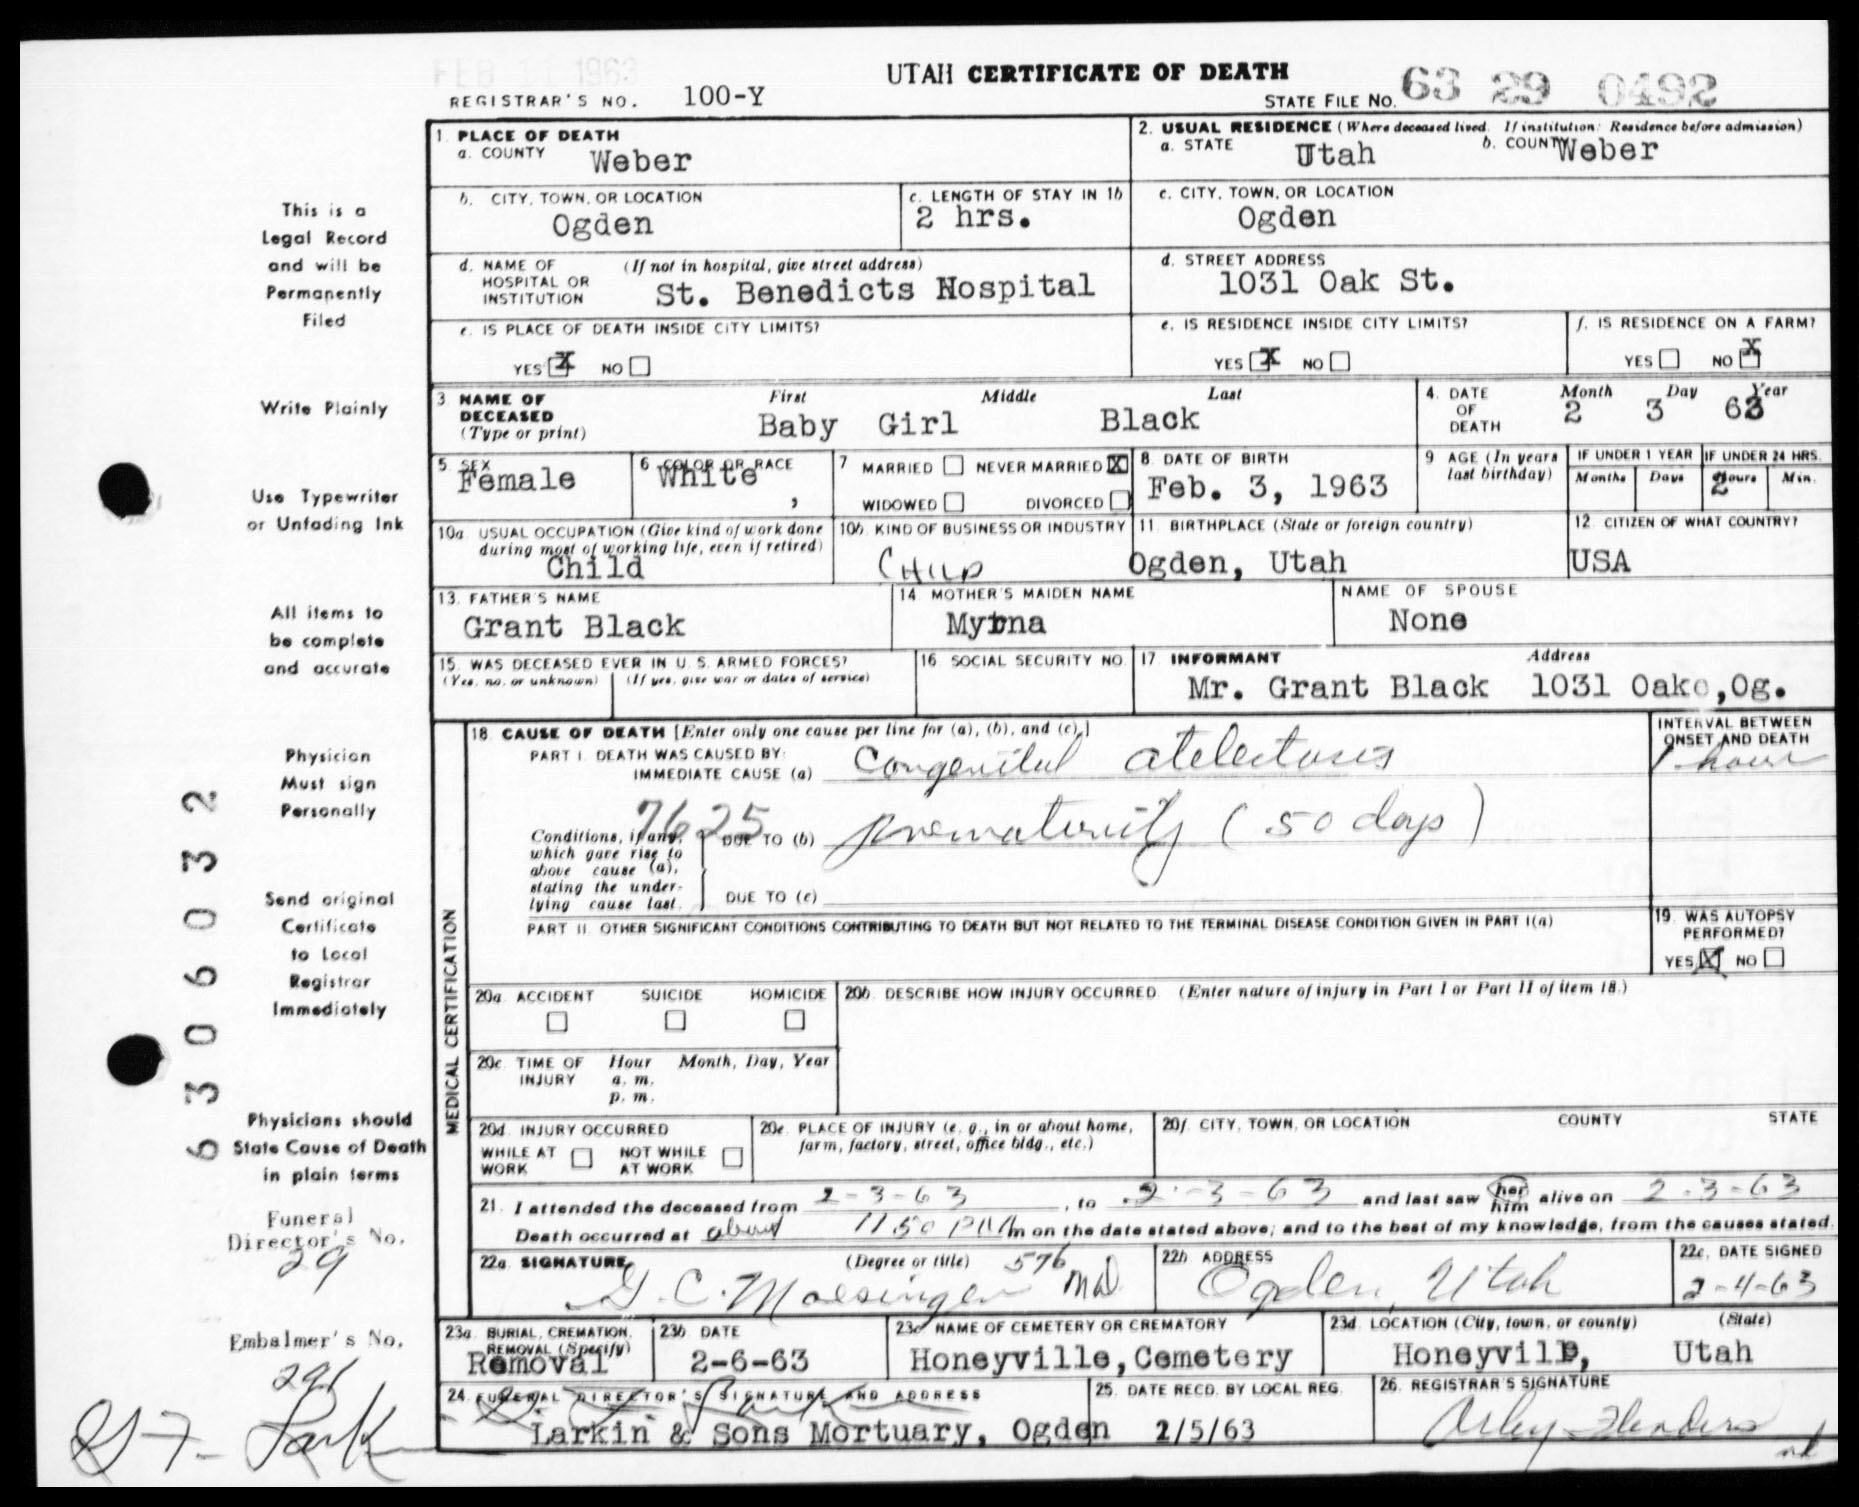 FEB 11 1963
UTAH CERTIFICATE OF DEATH
REGISTRAR'S NO. 100-Y
STATE FILE NO. 63 29 0492
1. PLACE OF DEATH
a. COUNTY Weber
2. USUAL RESIDENCE (Where deceased lived. If institution: Residence before admission)
a. STATE Utah b. COUNTY Weber
b. CITY, TOWN, OR LOCATION Ogden
c. LENGTH OF STAY IN 1b 2 hrs.
c. CITY, TOWN, OR LOCATION Ogden
d. NAME OF HOSPITAL OR INSTITUTION (If not in hospital, give street address) St. Benedicts Hospital
d. STREET ADDRESS 1031 Oak St.
e. IS PLACE OF DEATH INSIDE CITY LIMITS?
YES X NO
e. IS RESIDENCE INSIDE CITY LIMITS?
YES X NO
f. IS RESIDENCE ON A FARM?
YES NO X
3. NAME OF DECEASED (Type or print)
First Middle Last
Baby Girl Black
4. DATE OF DEATH Month Day Year
2 3 63
5. SEX Female
6. COLOR OR RACE White ,
7 MARRIED NEVER MARRIED X
WIDOWED DIVORCED
8. DATE OF BIRTH Feb. 3, 1963
9 AGE (In years last birthday)
IF UNDER 1 YEAR Months Days
IF UNDER 24 HRS. Hours Min.
2
10a. USUAL OCCUPATION (Give kind of work done during most of working life, even if retired) Child
10b. KIND OF BUSINESS OR INDUSTRY CHILD
11. BIRTHPLACE (State or foreign country) Ogden, Utah
12. CITIZEN OF WHAT COUNTRY? USA
13. FATHER'S NAME Grant Black
14. MOTHER'S MAIDEN NAME Myrna
NAME OF SPOUSE None
15. WAS DECEASED EVER IN U. S. ARMED FORCES?
(Yes, no, or unknown) (If yes, give war or dates of service)
16. SOCIAL SECURITY NO.
17. INFORMANT Address
Mr. Grant Black 1031 Oak, Og.
18. CAUSE OF DEATH [Enter only one cause per line for (a), (b), and (c).]
PART I. DEATH WAS CAUSED BY:
IMMEDIATE CAUSE (a) Congenital atelectasis
INTERVAL BETWEEN ONSET AND DEATH
1 hour
7625
Conditions, if any, which gave rise to above cause (a), stating the underlying cause last.
DUE TO (b) prematurity (50 days)
DUE TO (c)
PART II. OTHER SIGNIFICANT CONDITIONS CONTRIBUTING TO DEATH BUT NOT RELATED TO THE TERMINAL DISEASE CONDITION GIVEN IN PART I(a)
19. WAS AUTOPSY PERFORMED?
YES X NO
20a. ACCIDENT SUICIDE HOMICIDE
20b. DESCRIBE HOW INJURY OCCURRED. (Enter nature of injury in Part I or Part II of item 18.)
20c. TIME OF INJURY Hour Month, Day, Year
a. m.
p. m.
20d. INJURY OCCURRED
WHILE AT WORK NOT WHILE AT WORK
20e. PLACE OF INJURY (e. g., in or about home, farm, factory, street, office bldg., etc.)
20f. CITY, TOWN, OR LOCATION COUNTY STATE
21. I attended the deceased from 2-3-63, to 2-3-63 and last saw her him alive on 2-3-63
Death occurred at about 11 50 PM m on the date stated above; and to the best of my knowledge, from the causes stated.
22a. SIGNATURE (Degree or title) 576
G. C. Moesinger MD.
22b. ADDRESS Ogden, Utah
22c. DATE SIGNED 2-4-63
23a. BURIAL, CREMATION, REMOVAL (Specify) Removal
23b. DATE 2-6-63
23c. NAME OF CEMETERY OR CREMATORY Honeyville, Cemetery
23d. LOCATION (City, town, or county) (State)
Honeyville, Utah
24. FUNERAL DIRECTOR'S SIGNATURE AND ADDRESS
Larkin & Sons Mortuary, Ogden
25. DATE RECD. BY LOCAL REG. 2/5/63
26. REGISTRAR'S SIGNATURE
MEDICAL CERTIFICATION
This is a
Legal Record
and will be
Permanently
Filed
Write Plainly
Use Typewriter
or Unfading Ink
All items to
be complete
and accurate
Physician
Must sign
Personally
Send original
Certificate
to Local
Registrar
Immediately
Physicians should
State Cause of Death
in plain terms
Funeral
Director's No.
29
Embalmer's No.
291
6306032